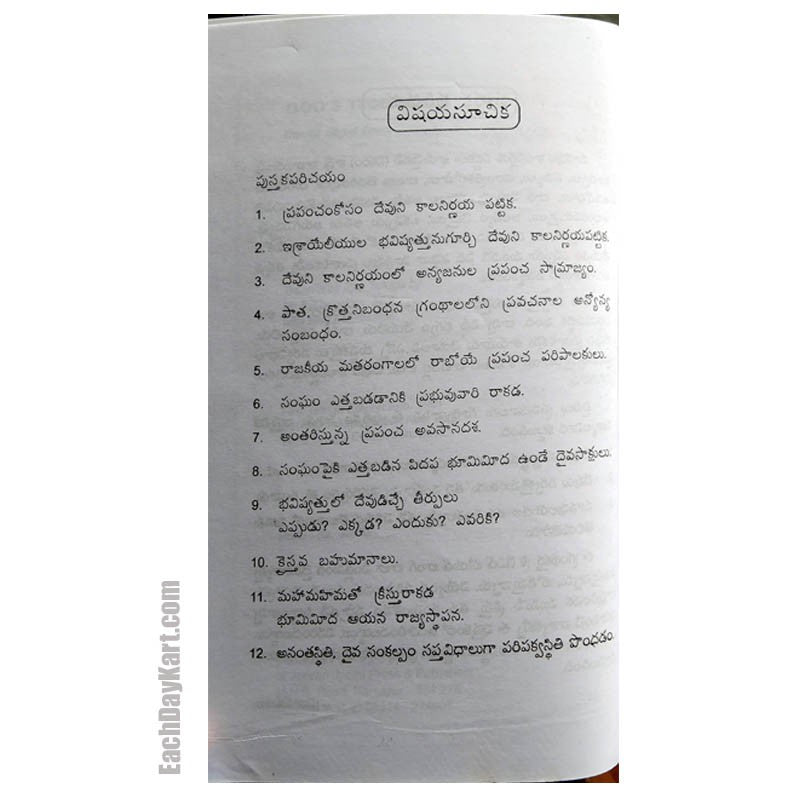 విషయసూచిక
పుస్తకపరిచయం
1. ప్రపంచంకోసం దేవుని కాలనిర్ణయ పట్టిక.
2. ఇశ్రాయేలీయుల భవిష్యత్తునుగూర్చి దేవుని కాలనిర్ణయపట్టిక.
3. దేవుని కాలనిర్ణయంలో అన్యజనుల ప్రపంచ సామ్రాజ్యం.
4. పాత, క్రొత్తనిబంధన గ్రంథాలలోని ప్రవచనాల అన్యోన్య
సంబంధం.
5. రాజకీయ మతరంగాలలో రాబోయే ప్రపంచ పరిపాలకులు.
6. సంఘం ఎత్తబడడానికి ప్రభువువారి రాకడ.
7. అంతరిస్తున్న ప్రపంచ అవసానదశ.
8. సంఘంపైకి ఎత్తబడిన పిదప భూమిమీద ఉండే దైవసాక్షులు.
9. భవిష్యత్తులో దేవుడిచ్చే తీర్పులు
ఎప్పుడు? ఎక్కడ? ఎందుకు? ఎవరికి?
10. క్రైస్తవ బహుమానాలు.
11. మహామహిమతో క్రీస్తురాకడ
భూమిమీద ఆయన రాజ్యస్థాపన.
12. అనంతస్థితి, దైవ సంకల్పం సప్తవిధాలుగా పరిపక్వస్థితి పొంధడం.
EachDayKart.com